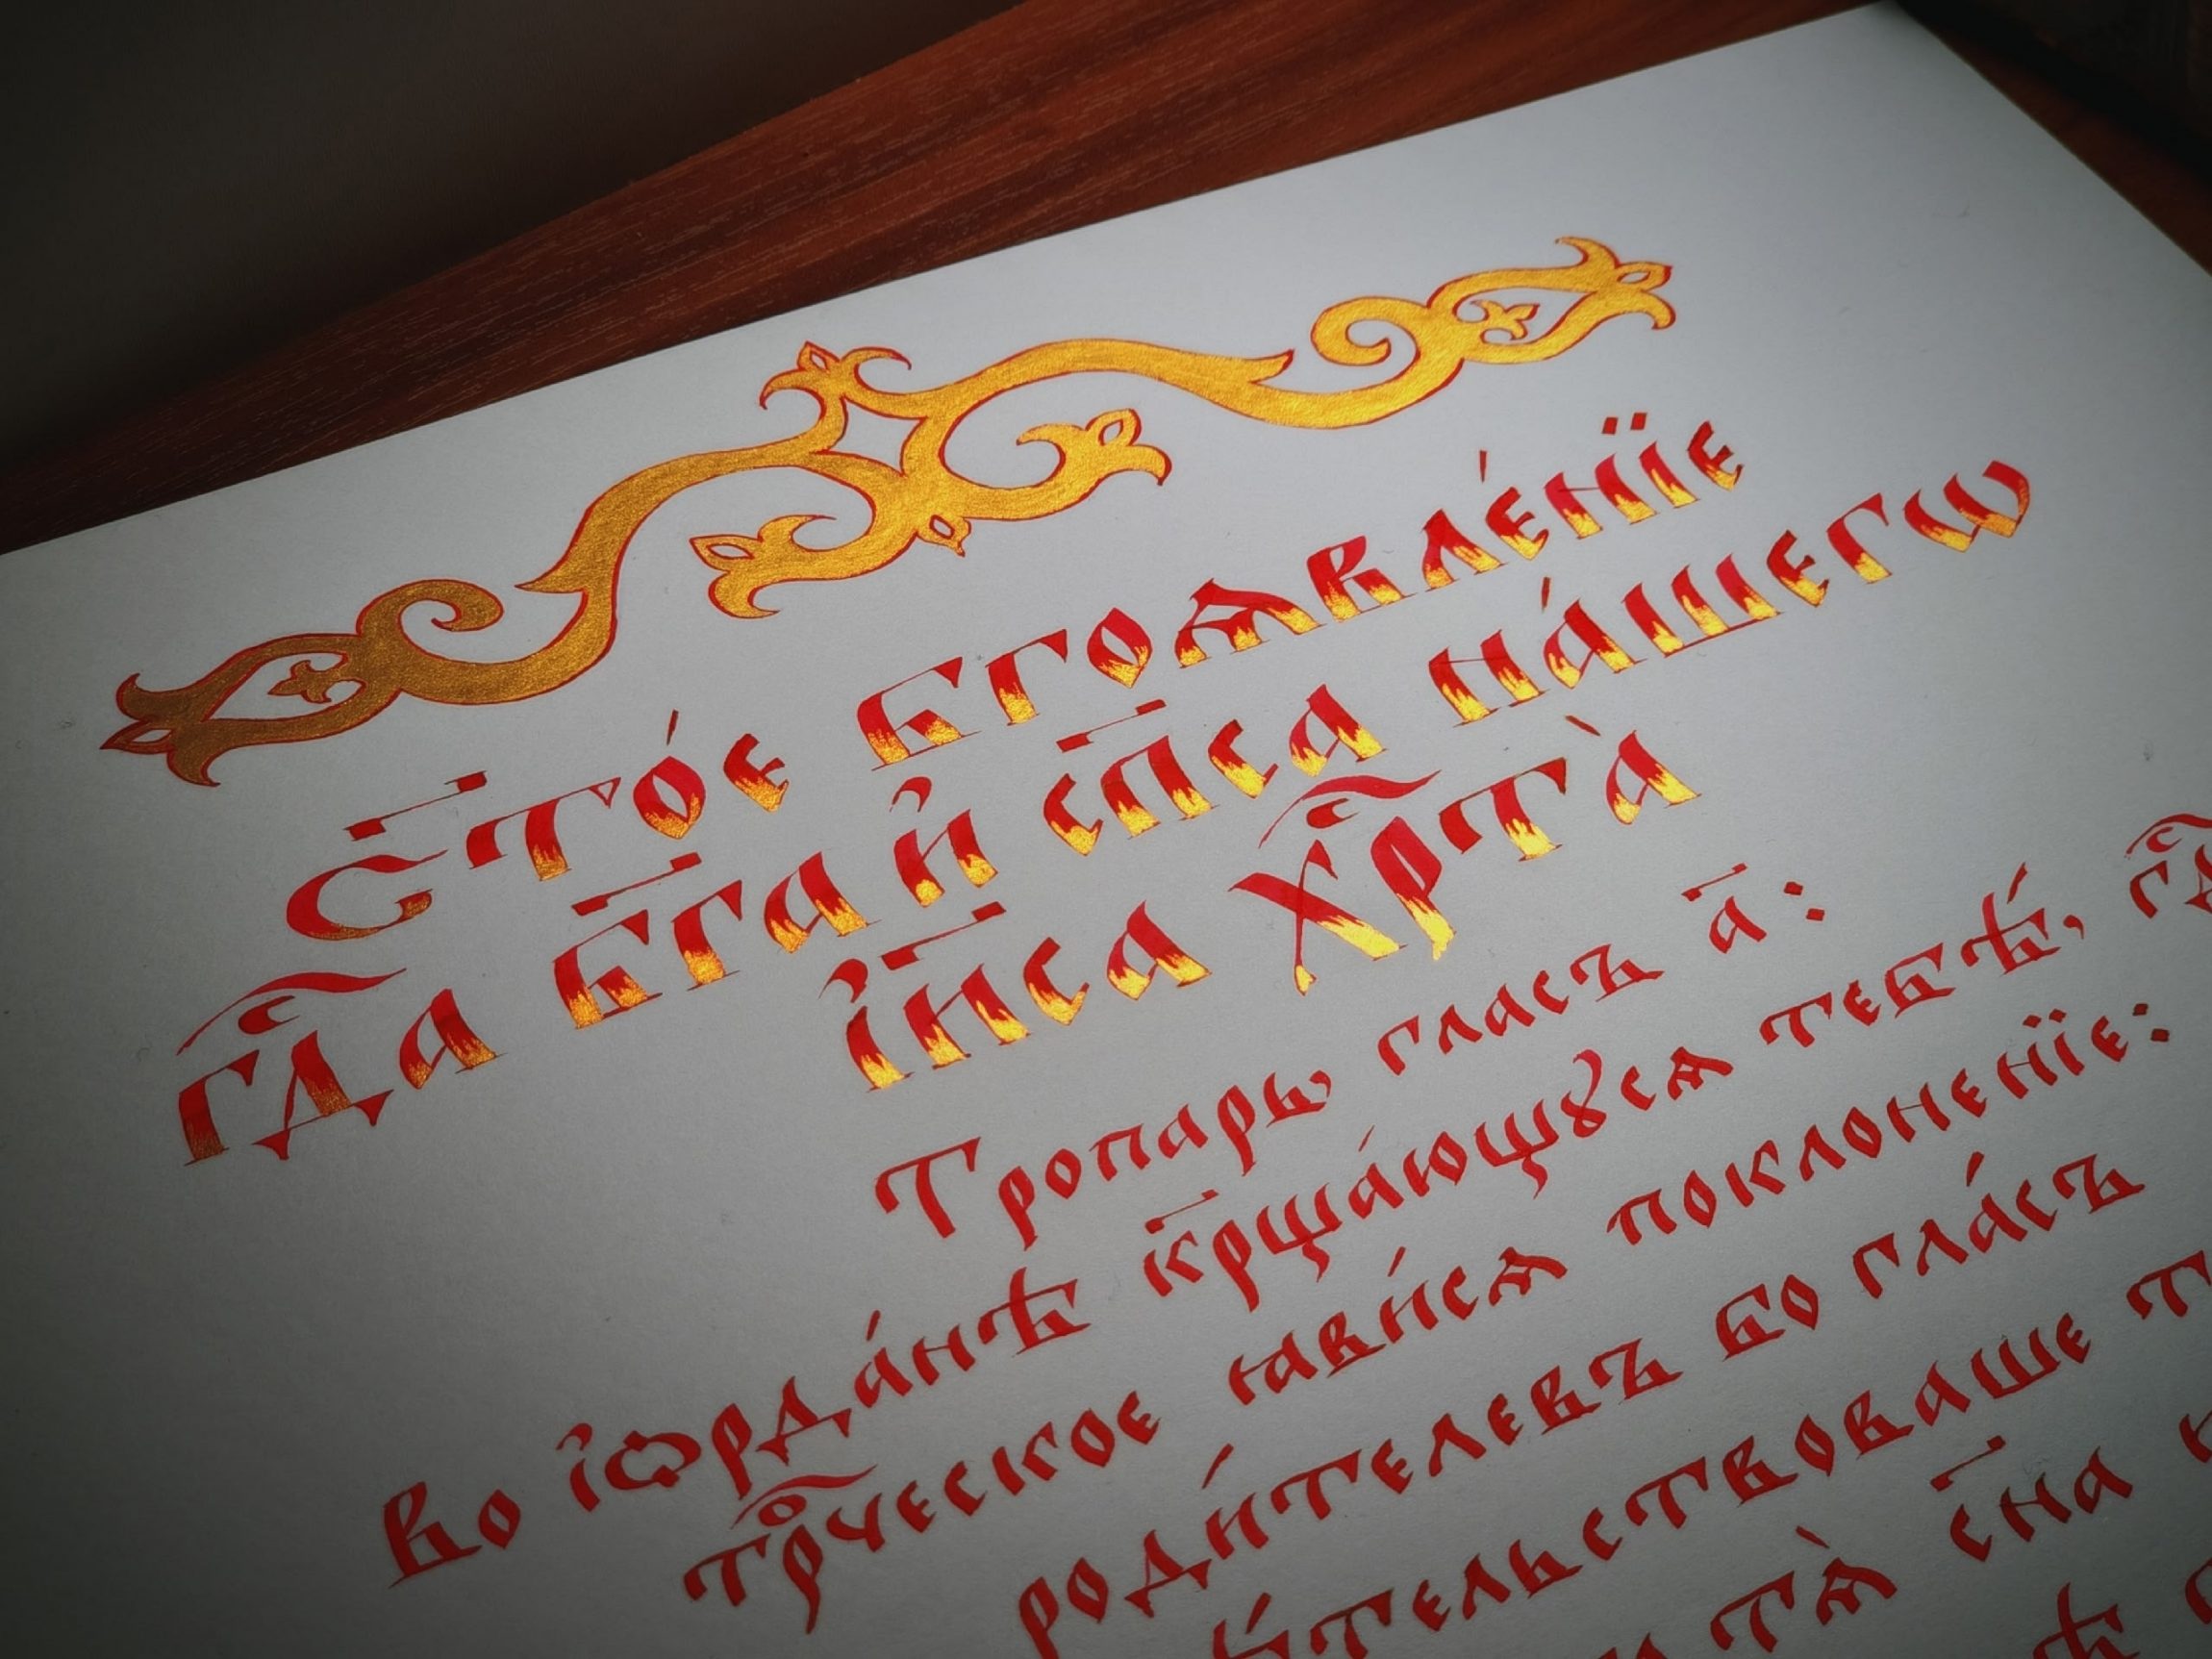 С҃то́е бг҃оѧвле́нїе
гдⷭ҇а бг҃а и҆ сп҃са на́шегѡ
і҆и҃са хрⷭ҇та̀
Тропарь гласъ а҃:
Во і҆ѻрда́нѣ кр҃ща́ющꙋсѧ тебѣ́, гдⷭ҇
трⷪ҇ческое ꙗви́сѧ поклоненїе:
роди́телевъ бо гла́съ
тельствоваше т
тѧ̀ сн҃а